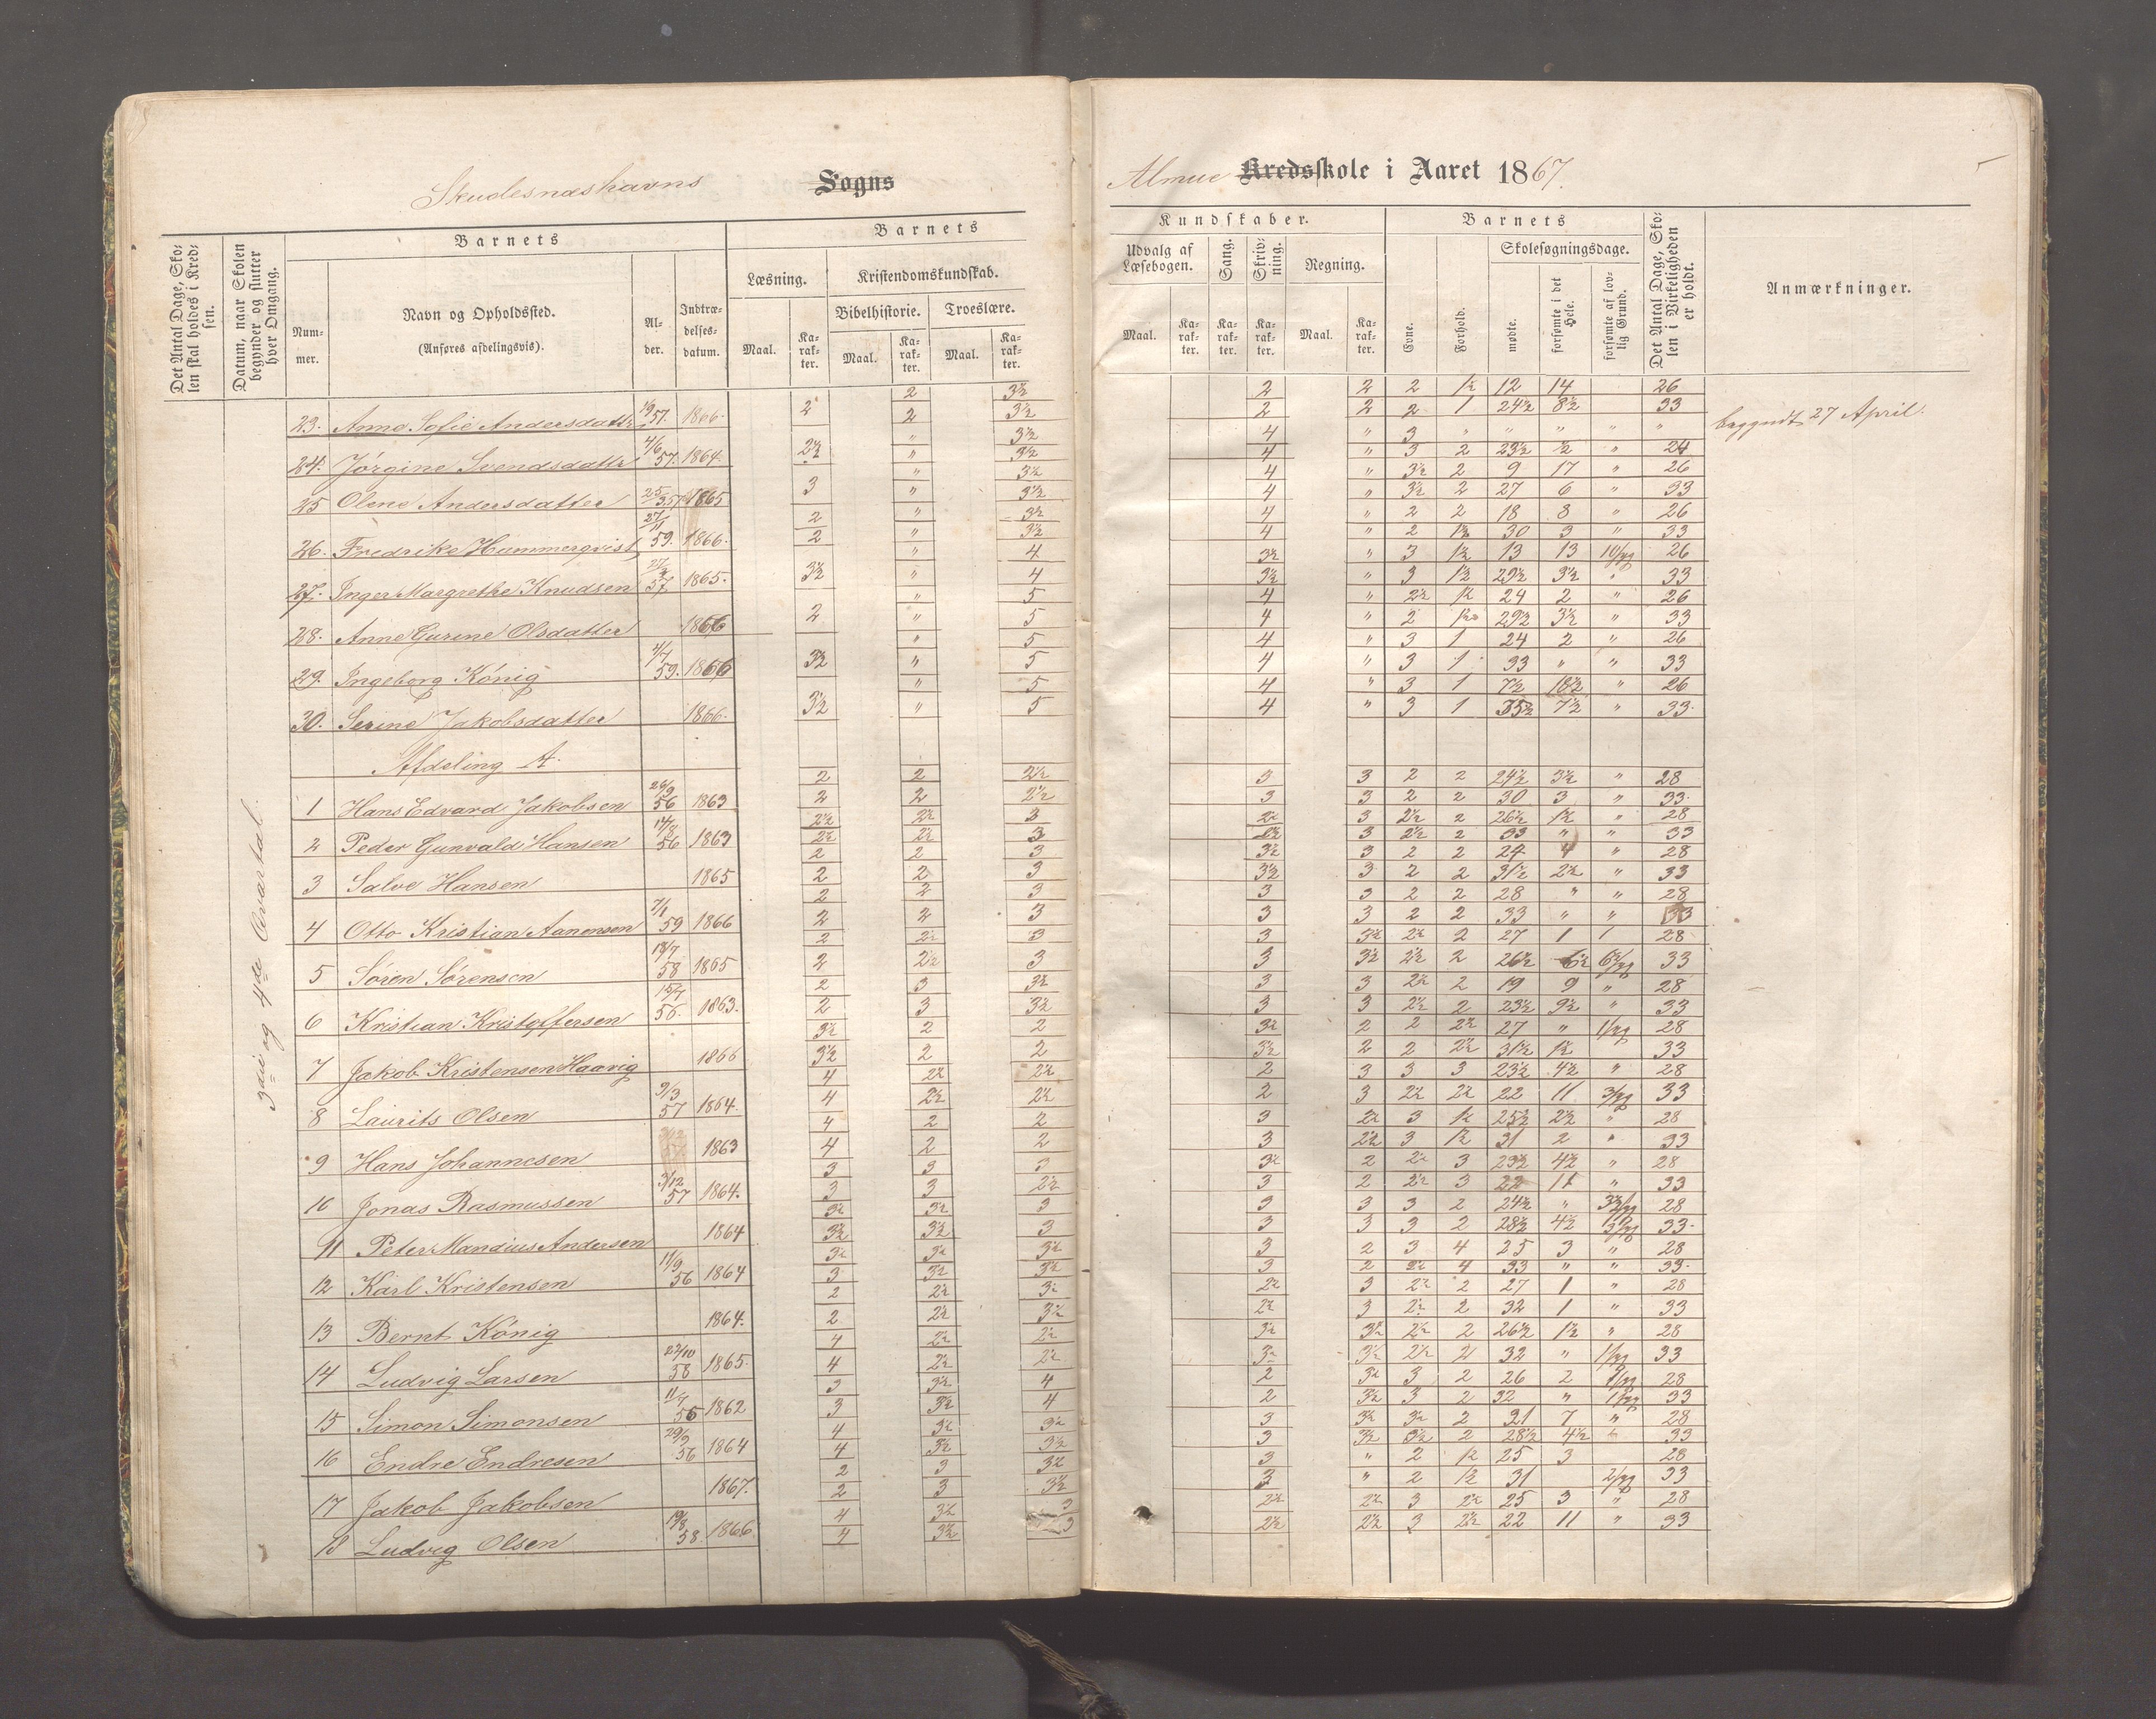 Skudesnæshavns Sogns
Det Antal Dage, Skolen skal holdes i Kredsen.
Datum, naar Skolen begynder og slutter hver Omgang.
Barnets
Nummer.
Navn og Opholdssted.
(Anføres afdelingsvis).
Alder.
Indtrædelsesdatum.
Barnets
Læsning.
Kristendomskundskab.
Bibelhistorie.
Troeslære.
Maal.
Karakter.
Maal.
Karakter.
Maal.
Karakter.
3die og 4de Qvartal.
23. Anne Sofie Andersdatter 1866. 2 2 3½
2 3½
24. Jørgine Svendsdatter 4/6 57. 1864. 2½ " 3½
" 3½
25 Olene Andersdatter 25/3 57 1865 3 " 3½
" 3½
26. Fredrike Hammerqvist 27/11 59. 1866. 2 " 3½
2 " 3½
27. Inger Margrethe Knudsen 57 1865. 3½ " 4
" 4
28. Anne Gurine Olsdatter 1866 2 " 5
" 5
29. Ingeborg König 4/7 59. 1866 3½ " 5
" 5
30. Serine Jakobsdatter 1866. 3½ " 5
" 5
Afdeling A.
1 Hans Edvard Jakobsen 26/9 56 1863 2 2 2½
2 2 2½
2 Peder Gunvald Hansen 14/8 56 1863 2½ 2½ 3
2½ 2½ 3
3 Salve Hansen 1865 2 2 3
2 2 3
4 Otto Kristian Aanensen 7/1 59 1866 2 2 3
2 2 3
5 Søren Sørensen 18/7 58 1865 2 2½ 3
2 2½ 3
6 Kristian Kristoffersen 15/7 56. 1863. 2 3 3½
2 3 3½
7 Jakob Kristensen Haavig 1866 3½ 2 2
3½ 2 2
8 Laurits Olsen 9/3 57 1864. 4 2½ 2½
4 2½ 2½
9 Hans Johannesen 1863 4 2 2
4 2 2
10 Jonas Rasmussen 3/12 57 1864. 3 3 3
3 3 2½
11 Peter Mandius Andersen 1864 3½ 3½ 3
3½ 3½ 3
12 Karl Kristensen 11/9 56 1864 3½ 3½ 3½
3 3½ 3½
13 Bernt König 1864. 2 2½ 3½
2 2½ 3½
14 Ludvig Larsen 27/10 58 1865. 4 2½ 2½
4 2½ 2½
15 Simon Simonsen 11/7 56 1862 3 3½ 4
3 3½ 4
16 Endre Endresen 29/9 56 1864 4 3½ 3½
4 3½ 3½
17 Jakob Jakobsen 1867. 2 3 3½
2 3 3½
18 Ludvig Olsen 19/8 58. 1866. 4 3½ 3
4 3½ 3
Almue Kredsskole i Aaret 1867.
5
Kundskaber.
Udvalg af Læsebogen.
Sang.
Skrivning.
Regning.
Maal.
Karakter.
Karakter.
Karakter.
Maal.
Karakter.
Barnets
Evne.
Forhold.
Skolesøgningsdage.
mødte.
forsømte i det Hele.
forsømte af lovlig Grund.
Det Antal Dage, Skolen i Virkeligheden er holdt.
Anmærkninger.
2 2 2 1½ 12 14 26
2 2 2 1 24½ 8½ 33 begyndt 27 April.
4 " 3 " " " " "
4 " 3 2 23½ ½ " 24
4 " 3½ 2 9 17 " 26
4 " 3½ 2 27 6 " 33
4 " 2 2 18 8 " 26
4 " 2 1½ 30 3 " 33
3½ " 3 1½ 13 13 26
3½ " 3 1½ 29½ 3½ " 33
4 " 2½ 1½ 24 2 " 26
4 " 2 1½ 29½ 3½ " 33
4 " 3 1 24 2 " 26
4 " 3 1 33 " " 33
4 " 3 1 7½ 18½ " 26
4 " 3 1 7½ " 33.
3 3 2 2 24½ 3½ " 28
3 3 2 2 30 3 " 33.
2½ 3 2½ 2 26½ 1½ " 28
2½ 3 2½ 2 33 " " 33
3½ 3 2 2 24 4 " 28
3½ 3 2 2 31½ 2½ " 33
3 3 2 2 28 " " 28
3 3 2 2 33 " " 33
3 3½ 2½ 2 27 1 1 28
3 3½ 2½ 2 26½ 6½ 33
3 3 2½ 2 19 9 " 28
3 3 2½ 2 23½ 9½ " 33
3½ 2 2 2½ 27 " 28
3½ 2 2 2½ 31½ 1½ 33
2 3 3 3 23½ 4½ " 28
2 3 2½ 2½ 22 11 33
3 2½ 3 1½ 25½ 2½ " 28
3 2½ 3 1½ 31 2 " 33
3½ 2 2½ 3 23½ 4½ " 28
3 2 2½ 3 22 11 " 33
3 3 3 2 24½ " 28
3 3 3 2 28½ 4½ 33.
3 2 3 4 25 3 " 28
3 2 2½ 4 33 " " 33.
2½ 3 2½ 2 27 1 " 28
2½ 3 2½ 2 32 1 " 33
3½ 3½ 2½ 2 26½ 1½ " 28
3½ 3½ 2½ 2 32 " 33
2 3½ 3 2 26 2 28
2 3½ 3 2 32 " 33
3 3½ 3½ 2 21 7 " 28
3 3½ 3½ 2 28½ 4½ 33
3 " 2 1½ 25 3 28
3 " 2 1½ 31 33
2½ 2½ 3 2½ 25 3 " 28
2½ 2½ 3 2½ 22 11 " 33